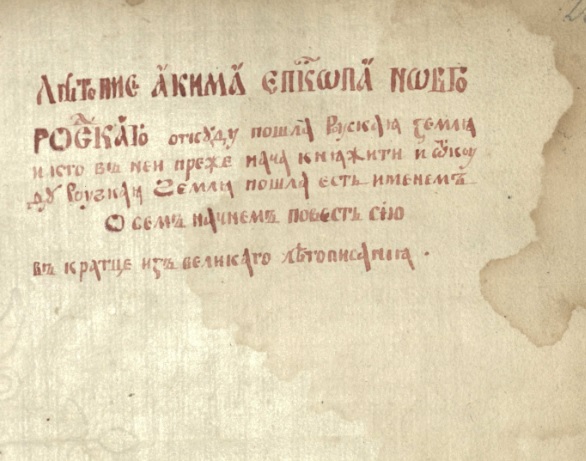 Лѣтопис Акима епⷭ҇кѡпа Новго
родскаго откуду пошла Руская земля
и кто в неи преже нача княжити и ѿкоу
ду Руская земля пошла есть именемъ
О семъ начнемъ повесть сию
въ кратце изъ великаго лѣтописания .